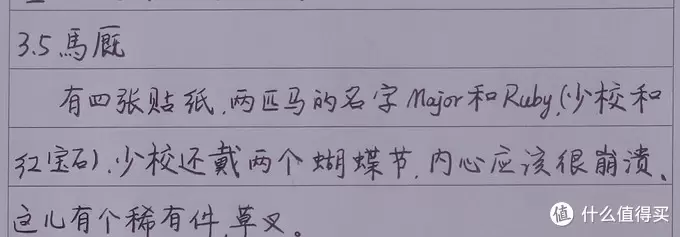 3.5 馬厩
有四张贴纸,两匹马的名字Major和Ruby,(少校和
红宝石),少校还戴两个蝴蝶节,内心应该很崩溃、
这儿有个稀有件,草叉。
值 什么值得买